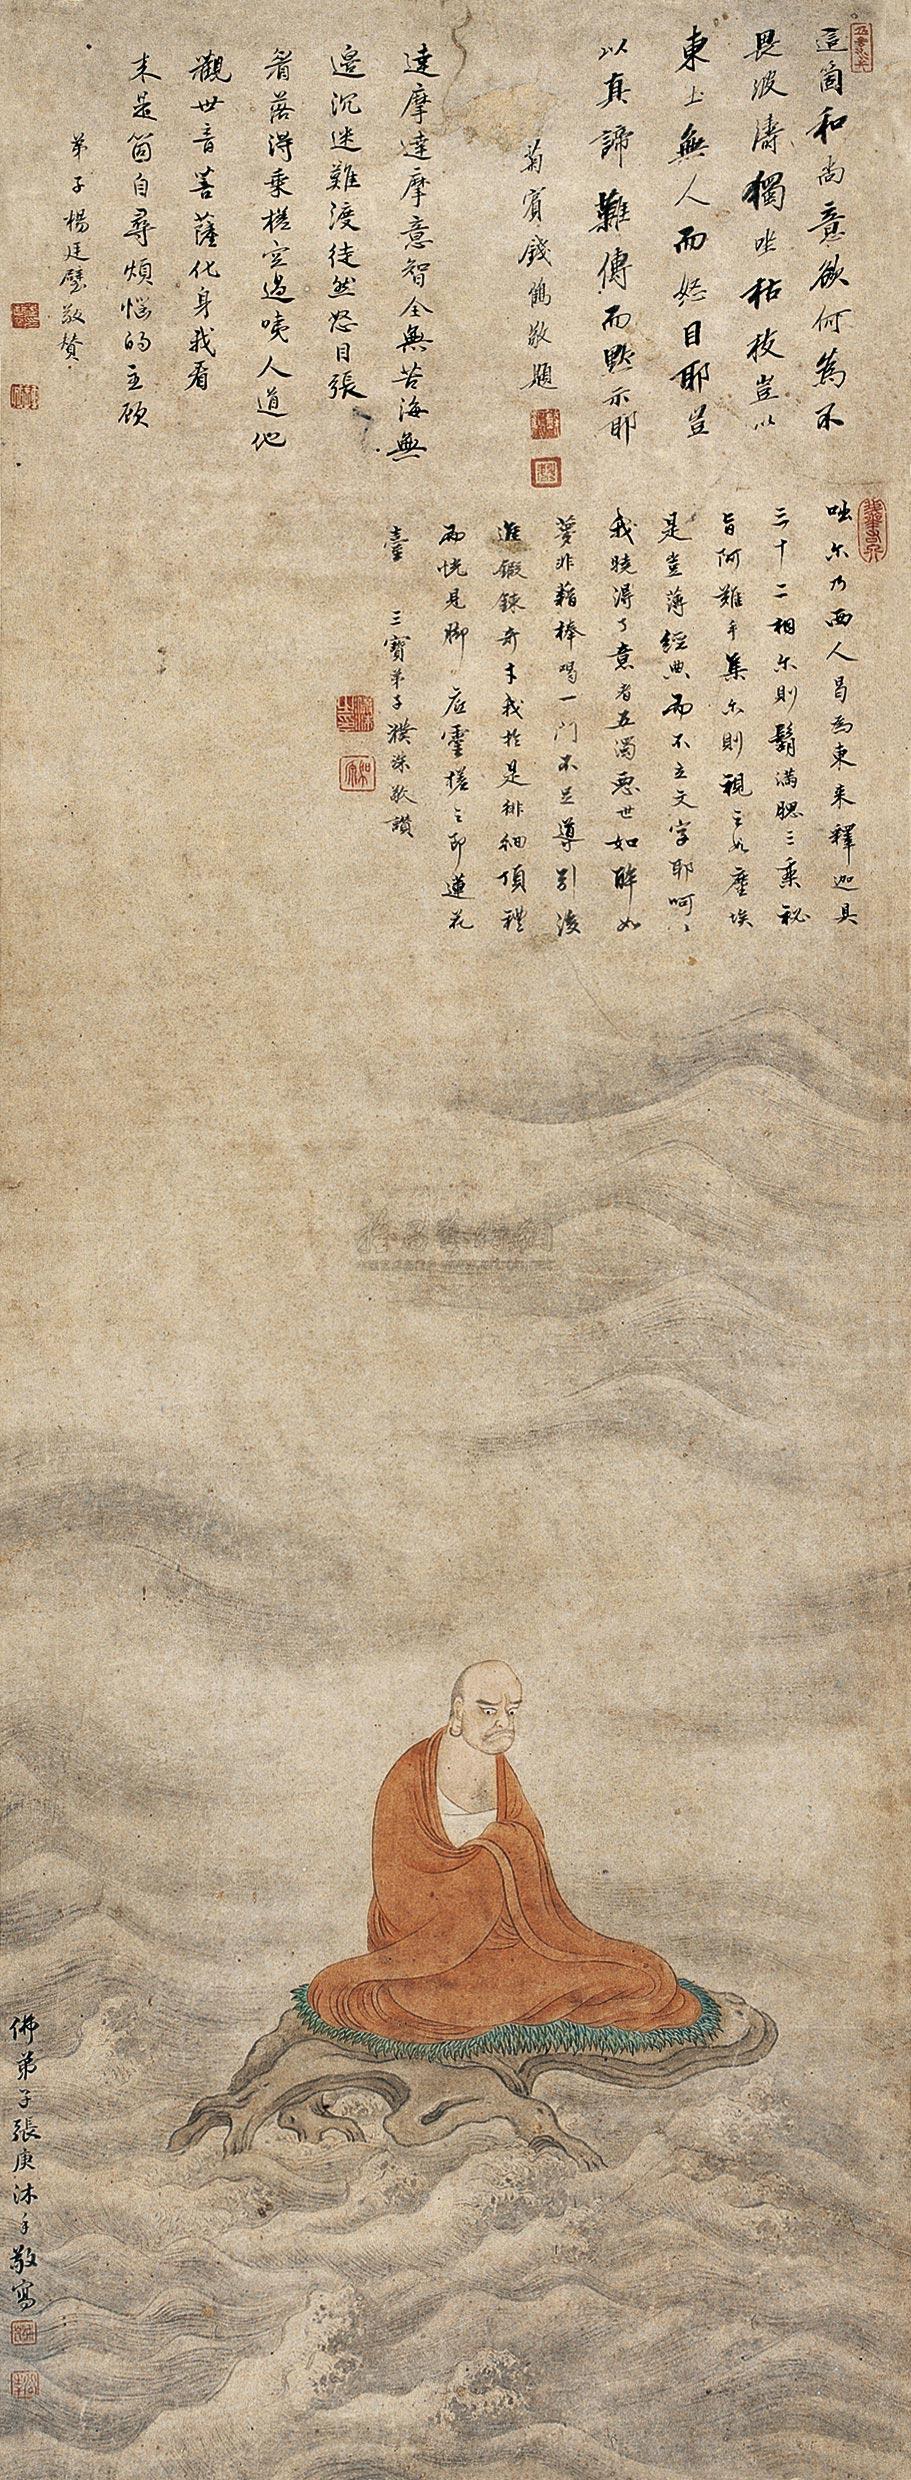 這箇和尚意欲何為不
畏波濤獨坐枯枝豈以
東土無人而怒目耶豈
以真諦難傳而默示耶
菊賓錢鶴敬題
達摩達摩意智全無苦海無
邊沉迷難渡徒然怒目張
着落得乘槎空過咦人道他
觀世音菩薩化身我看
來是箇自尋煩惱的主顧
弟子楊廷璧敬贊
咄尔乃西人曷為東来釋迦具
三十二相尔則鬍滿腮三乗秘
旨阿難手集尔則視之如塵埃
是豈薄經典而不立文字耶呵〻
我曉得了意者五濁惡世如醉如
夢非藉棒喝一門不足導引後
進鍛鍊奇才我於是徘徊頂禮
而恍見脚底靈槎之即蓮花
臺 三寶弟子濮深敬讚
佛弟子張庚沐手敬寫